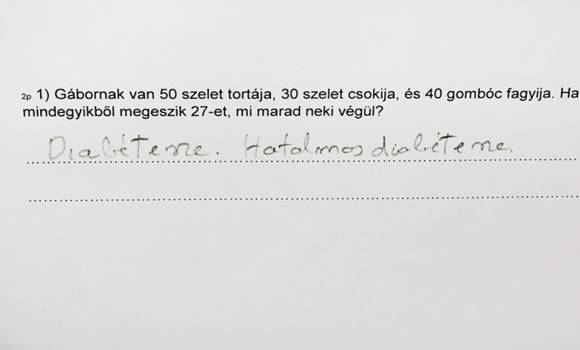 2p 1) Gábornak van 50 szelet tortája, 30 szelet csokija, és 40 gombóc fagyija. Ha
mindegyikből megeszik 27-et, mi marad neki végül?
Diabétesze. Hatalmas diabétesze.